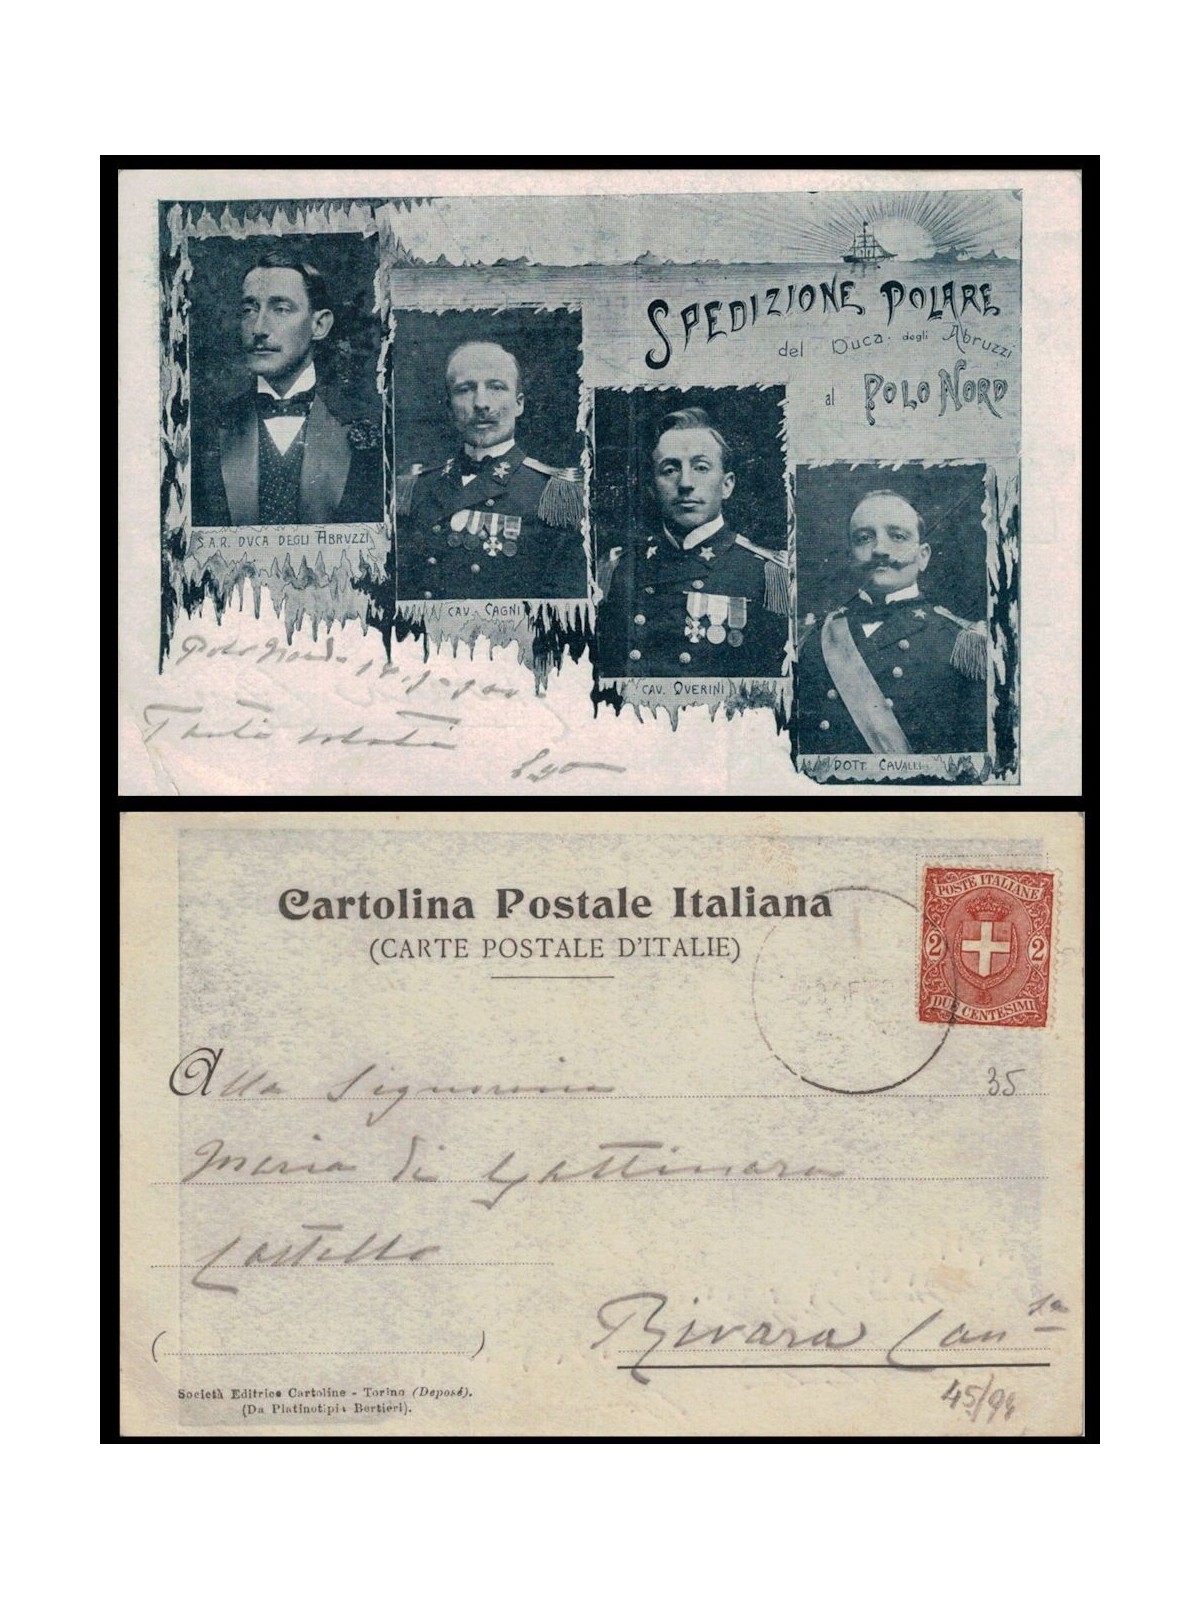 SPEDIZIONE POLARE
del Duca degli Abruzzi
al POLO NORD
S.A.R. DUCA DEGLI ABRUZZI
CAV. CAGNI
CAV. QUERINI
DOTT. CAVALLI
Polo Nord
Tanti saluti
Cartolina Postale Italiana
(CARTE POSTALE D'ITALIE)
POSTE ITALIANE
2 2
DUE CENTESIMI
Alla Signorina
35
Maria di Gattinara
Castello
Rivara Can.se
( )
Società Editrice Cartoline - Torino (Deposé).
(Da Platinotipie Bertieri).
45/94